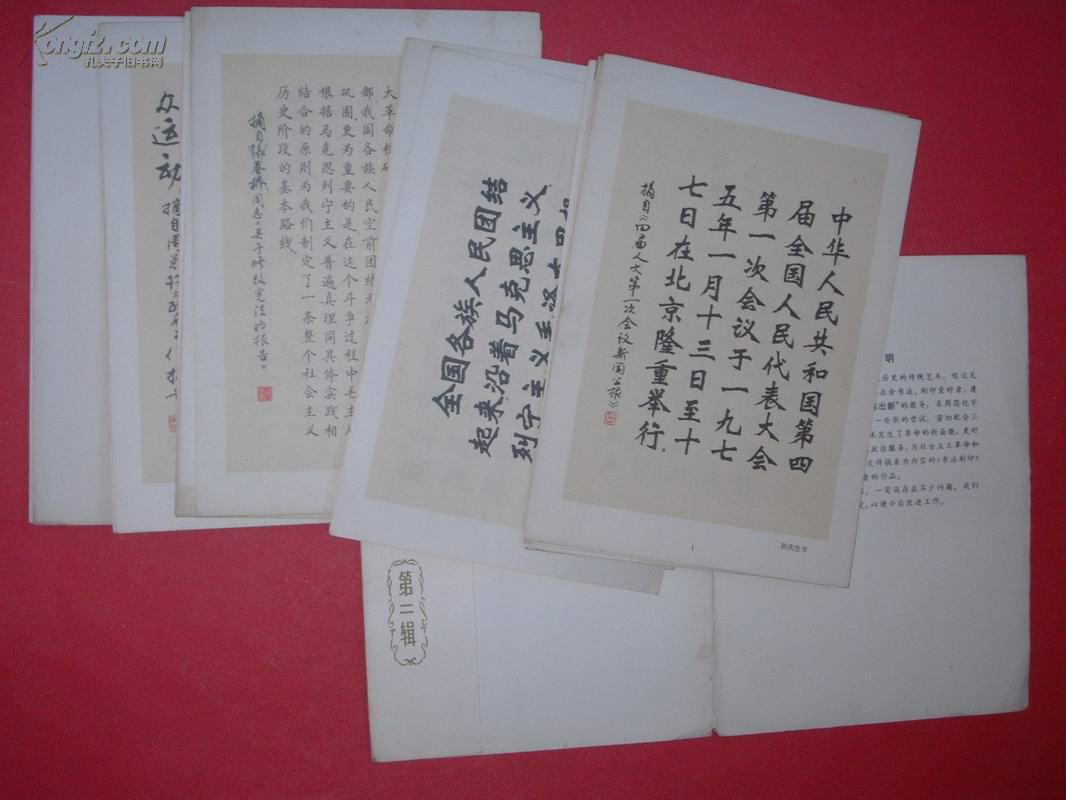 Kongfz.com
孔夫子旧书网
众
运动
大革命
部我国各族人民空前团结
巩固。更为重要的是在这个斗争过程中毛主
根据马克思列宁主义普遍真理同具体实践相
结合的原则为我们制定了一条整个社会主义
历史阶段的基本路线。
摘自张春桥同志《关于修改宪法的报告》
全国各族人民团结
起来,沿着马克思主义、
列宁主义
中华人民共和国第四
届全国人民代表大会
第一次会议于一九七
五年一月十三日至十
七日在北京隆重举行。
摘自《四届人大第一次会议新闻公报》
1
孙洪生书
明
历史的传统艺术。经过无
业余书法、刻印爱好者,遵
陈出新"的教导,采用简化字
一些新的尝试,密切配合三
术发生了革命的新面貌,更好
政治服务,为社会主义革命和
文件摘录为内容的《书法刻印》
者的作品。
一定还存在不少问题。我们
以便今后改进工作。
第二辑